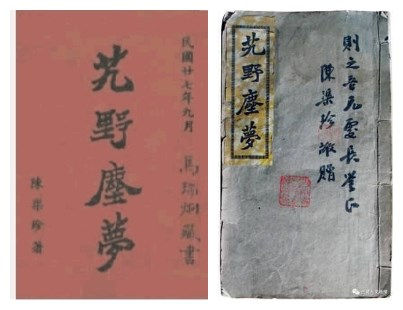 民國廿七年九月
馬藏書
艽野塵夢
陳渠珍著
則之吾兄處長正
陳渠珍敬贈
艽野塵夢